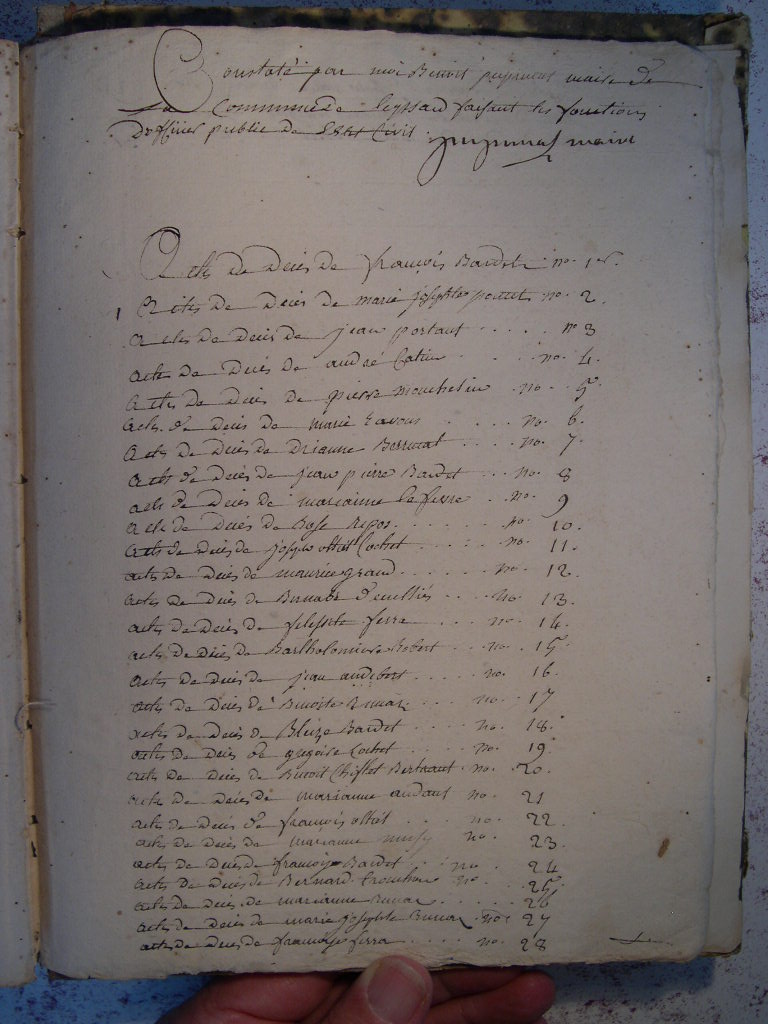 Constaté par moi Benoit maire de
La Commune de Leyssard faisant les fonctions
Dofficier public de Létat Civil
maire
Actes de Deces de françois Bardet no. 1er.
Actes de Deces de marie josephte poncet no. 2.
actes de Deces de jean portaut . . . . . no 3
actes de Deces de andré Catin . . . no. 4.
actes de Deces de pierre mouchelin . no. 5
actes de Deces de marie . . . . no. 6.
Actes de Deces de Drianne . . . . no. 7.
actes de Deces de jean pierre Bardet . . . no. 8
acte de Deces de marianne le fevre . . no. 9
acte de Deces de Rose Repos . . . . . . no. 10.
actes de Deces de joseph Cochet . . . . . no. 11.
actes de Deces de maurice grand . . . . . no. 12.
actes de Deces de . . . no. 13.
actes de Deces de ferra . . . . no. 14.
actes de Deces de Bartholomieu Robert . . . no. 15
actes de Deces de jean audibert . . . . no. 16
actes de Deces de Benoite . . . . no. 17
actes de Deces de Bleize Bardet . . . . no. 18.
actes de Deces de gregoire Cochet . . . . no. 19
actes de Deces de Benoit Chiflot Bertrand . no. 20.
acte de Deces de marianne audant no. 21
actes de Deces de françois . . . no. 22
actes de Deces de marianne no. 23
actes de Deces de françoise Bardet . . no. 24
actes de Deces de Bernard no. 25
actes de Deces de marianne . . . 26
actes de Deces de marie josephte no. 27
actes de Deces de françoise ferra . . . . no. 28